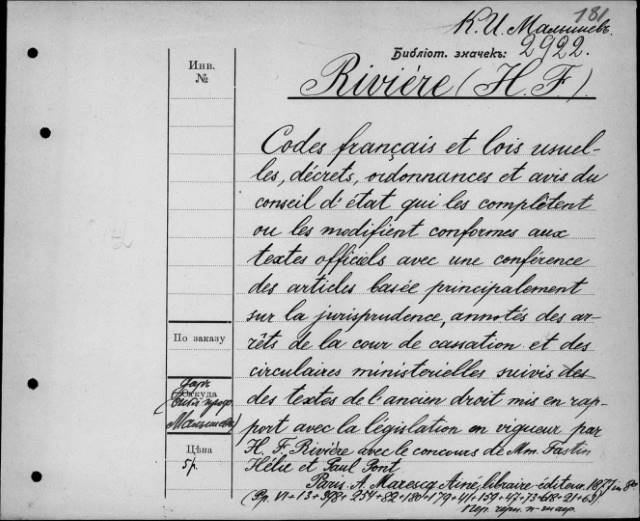 181
К. И. Малышевъ
Библіот. значекъ: 2922.
Инв.
№
Rivière (H. F.)
Codes français et lois usuel-
les, décrets, ordonnances et avis du
conseil d'état qui les complètent
ou les modifient conformes aux
textes officiels avec une conférence
des articles basée principalement
sur la jurisprudence, annotés des ar-
rêts de la cour de cassation et des
circulaires ministerielles suivis des
des textes de l'ancien droit mis en rap-
port avec la législation en vigueur par
H. F. Rivière avec le concours de Mm. Fastin
Hélie et Paul Pont
Paris. A. Marescq Ainé, libraire-éditeur. in 8º
(Pp. VI+13+398+254+82+180+179+41+159+47+73+618+21+63)
По заказу
Даръ
Откуда
Малышева
Цѣна
5 р.